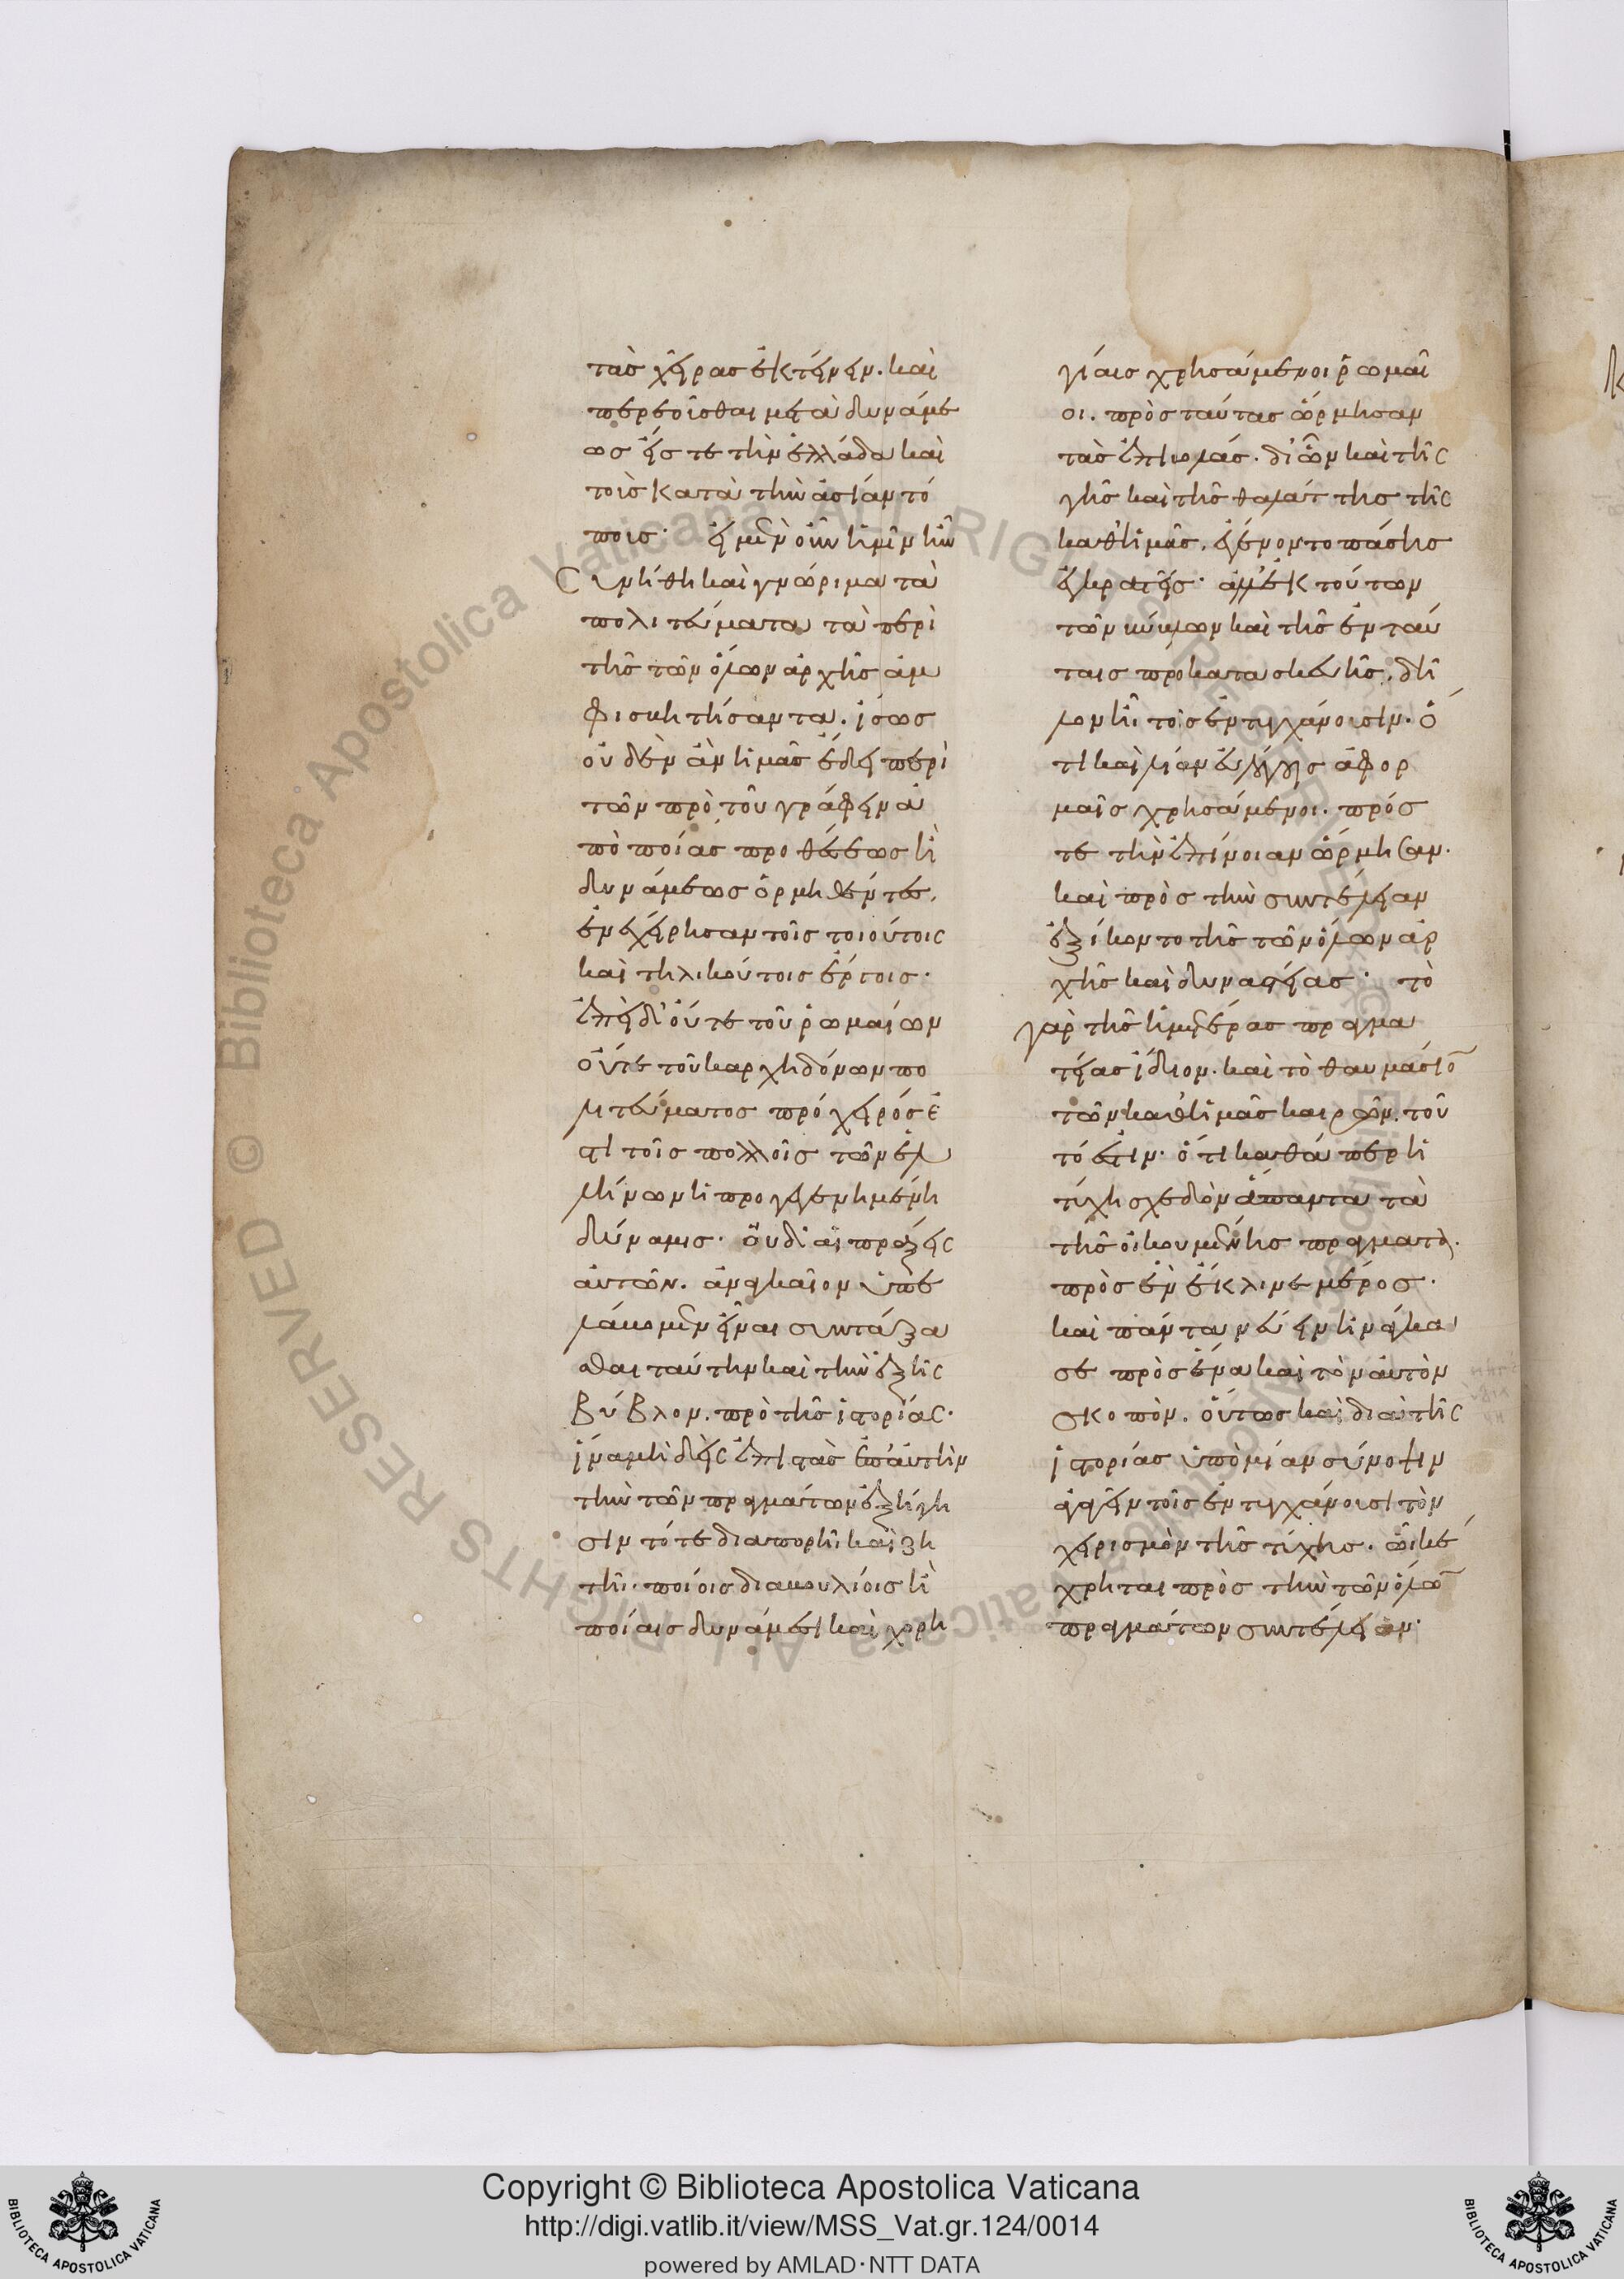 τὰς χεῖρας ἐκτείνειν. καὶ
περεοῖσθαι μετὰ δυνάμε
ως εἴς τε τὴν ἑλλάδα καὶ
τοὶς κατὰ τὴν ἀσίαν τό
ποις· εἰ μὲν οὖν ἡμῖν ἦν
Συνήθη καὶ γνώριμα τὰ
πολιτεύματα τὰ περὶ
τῆς τῶν ὅλων ἀρχῆς ἀμ
φισκητήσαντα. ἴσως
οὐδὲν ἂν ἡμᾶς ἔδει περὶ
τῶν πρὸ τοῦ γράφειν ἀ
πὸ ποίας προθέσεως ἢ
δυνάμεως ὁρμηθέντες.
ἐνεχείρησαν τοῖς τοιούτοις
καὶ τηλικούτοις ἔργοις·
ἐπεὶ δ' οὔτε τοῦ ῥωμαίων
οὔτε τοῦ καρχηδόνων πο
λιτεύματος πρόχειρός ἐ
στι τοῖς πολλοῖς τῶν ἑλ
λήνων ἡ προγεγενημένη
δύναμις· οὐδ' αἱ πράξεις
αὐτῶν. ἀναγκαῖον ὑπε
λάκομεν εἶναι συντάξα
σθαι ταύτην καὶ τὴν ἑξῆς
βύβλον. πρὸ τῆς ἱστορίας·
ἵνα μηδεὶς ἐπιστὰς ἐπ' αὐτὴν
τὴν τῶν πραγμάτων ἐξήγη
σιν τότε διαπορῆι καὶ ζη
τῆι. ποίοις διακουλίοις ἢ
ποίαις δυνάμεσι καὶ χορη
γίαις χρησάμενοι ῥωμαῖ
οι. πρὸς ταύτας ὥρμησαν
τὰς ἐπικολάς. δι' ὧν καὶ τῆς
γῆς καὶ τῆς θαλάττης τῆς
καθ' ἡμᾶς. ἐγένοντο πάσης
ἐγκρατεῖς· ἀλλ' ἐκ τούτων
τῶν κύκλων καὶ τῆς ἐν ταύ
ταις προκατασκευῆς. δῆ
λον ἦι τοῖς ἐντυγχάνουσιν. ὅ
τι καὶ λίαν εὐλόγοις ἀφορ
μαῖς χρησάμενοι. πρός
τε τὴν ἐπίνοιαν ὥρμησαν.
καὶ πρὸς τὴν συντέλειαν
ἐξίκοντο τῆς τῶν ὅλων ἀρ
χῆς καὶ δυναστείας· τὸ
γὰρ τῆς ἡμετέρας πραγμα
τείας ἴδιον. καὶ τὸ θαυμάσιο̅
τῶν καθ' ἡμᾶς καιρῶν. τοῦ
τό ἐστιν. ὅτι καθάπερ ἡ
τύχη σχεδὸν ἅπαντα τὰ
τῆς οἰκουμένης πράγματα.
πρὸς ἓν ἔκλινε μέρος.
καὶ πάντα νεύειν ἠνάγκα
σε πρὸς ἕνα καὶ τὸν αὐτὸν
σκοπὸν. οὕτως καὶ διὰ τῆς
ἱστορίας ὑπὸ μίαν σύνοψιν
ἀγαγεῖν τοῖς ἐντυγχάνουσι τὸν
χειρισμὸν τῆς τύχης. ὧι κέ
χρηται πρὸς τὴν τῶν ὅλω̅
πραγμάτων συντέλειαν·
Copyright © Biblioteca Apostolica Vaticana
http://digi.vatlib.it/view/MSS_Vat.gr.124/0014
powered by AMLAD·NTT DATA